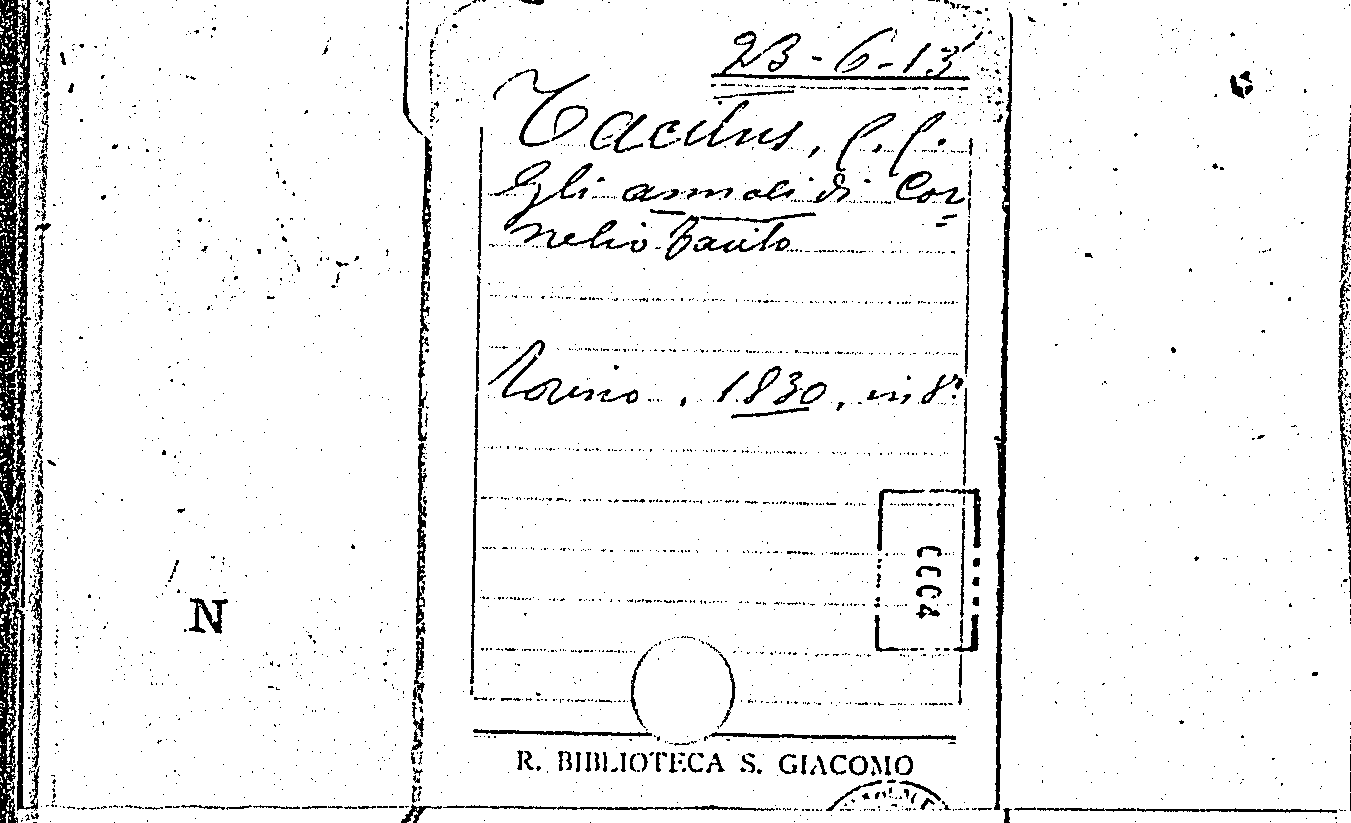 23-6-13
Tacitus, C. C.
Gli annali di Cor=
nelio Tacito
Torino, 1830, in 8°
N
R. BIBLIOTECA S. GIACOMO